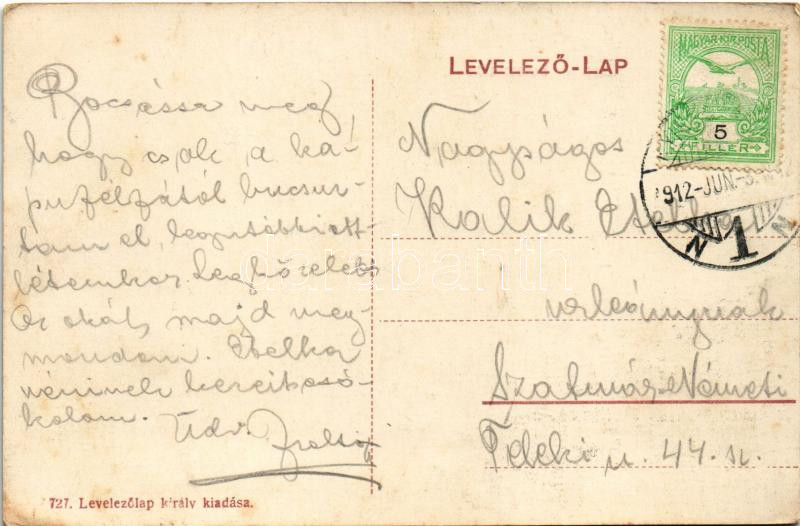 LEVELEZŐ-LAP
MAGYAR·KIR·POSTA
5
FILLER
912-JUN.-
N 1 N
Bocsássa meg,
hogy csak a ka-
pufelfától bucsuz-
tam el, legutóbbi ott
létemkor. Legközelebb
az okát, majd meg-
mondom. Etelka
néninek kezeit csó-
kolom.
Üdv. Zsolt
Nagyságos
Kalik Etelka
urleánynak
Szatmár-Németi
Teleki u. 44. sz.
727. Levelezőlap király kiadása.
darabanth